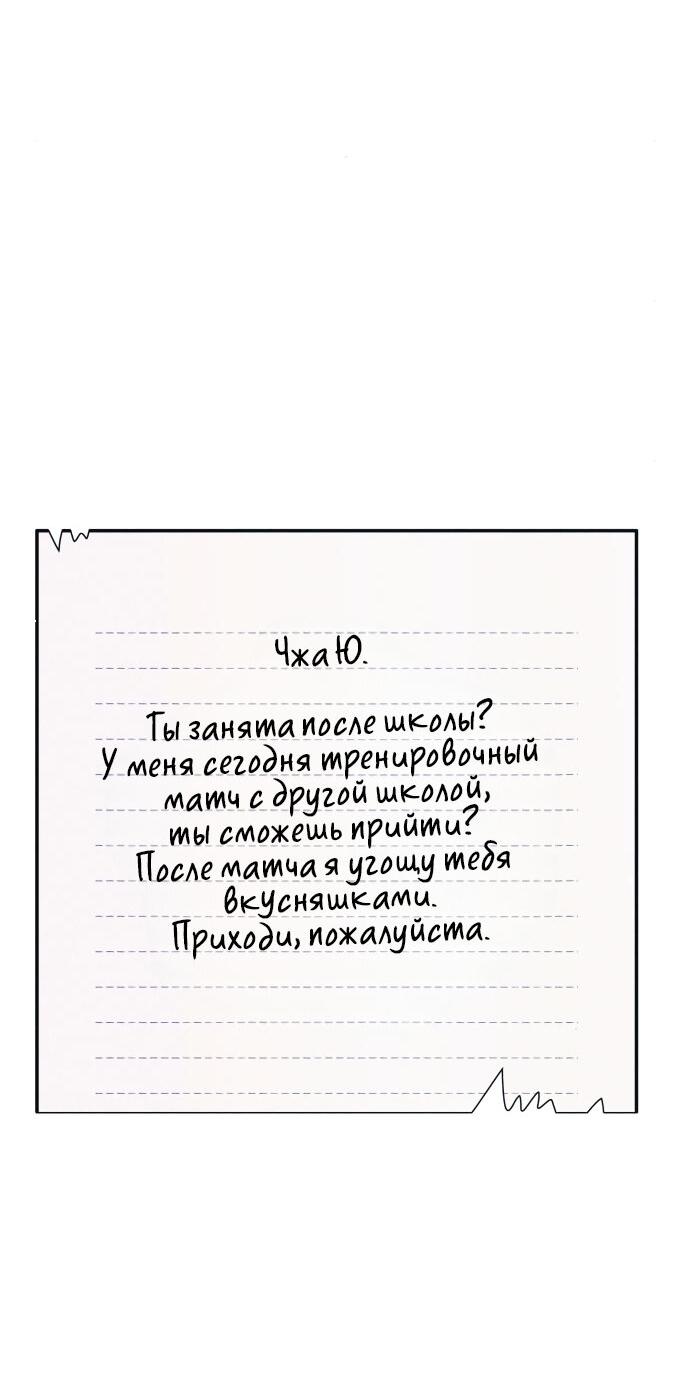 Чжа Ю.
Ты занята после школы?
У меня сегодня тренировочный
матч с другой школой,
ты сможешь прийти?
После матча я угощу тебя
вкусняшками.
Приходи, пожалуйста.